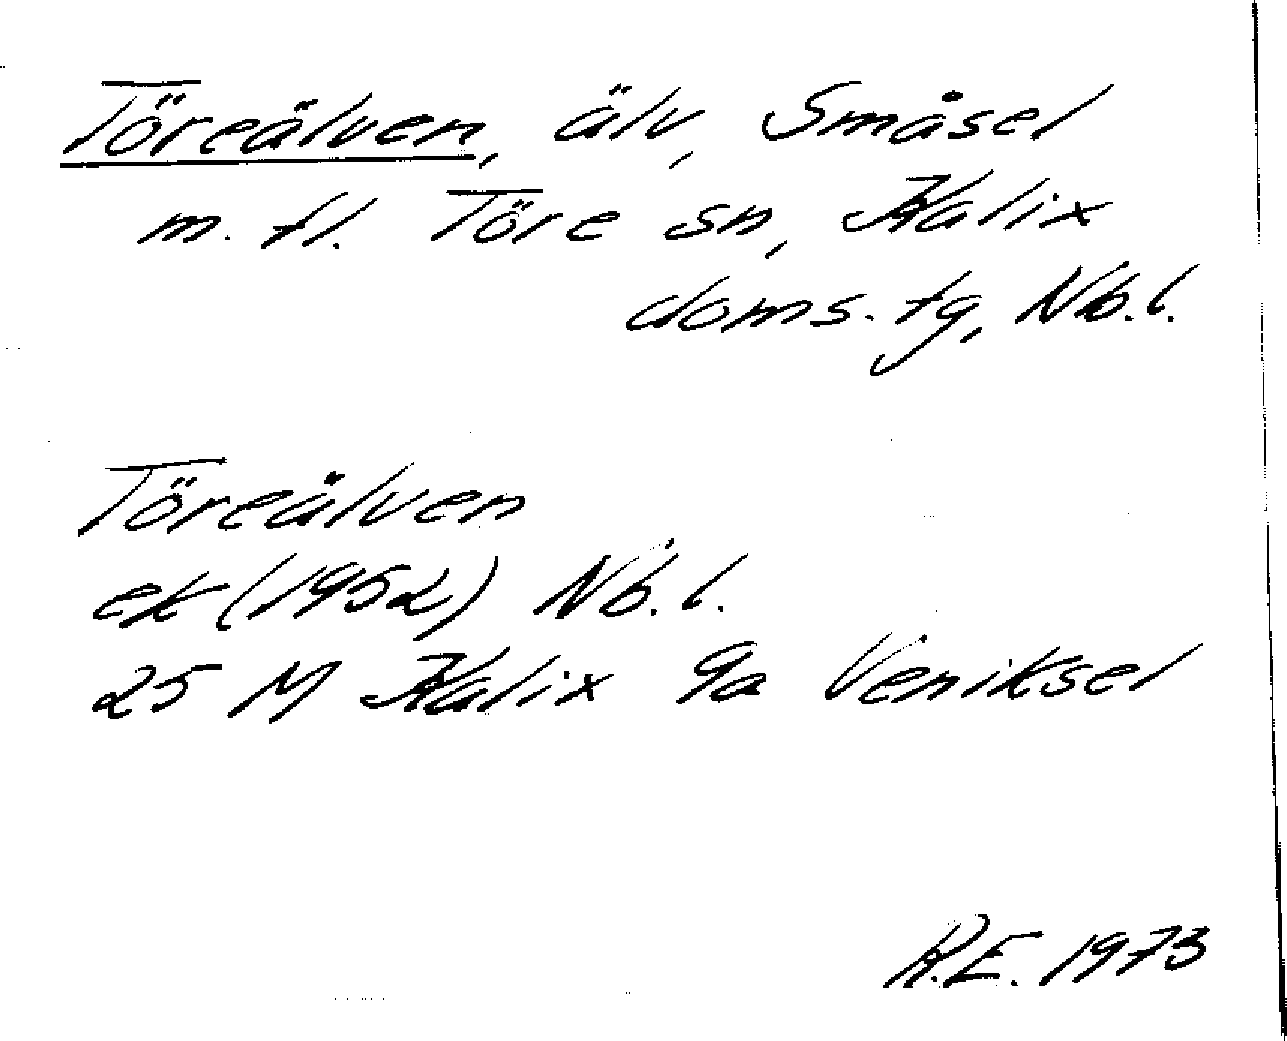 Töreälven, älv, Småsel
m. fl. Töre sn, Kalix
doms. tg, Nb. l.
Töreälven
ek (1952) Nb. l.
25 M Kalix 9a Veniksel
R.E. 1973